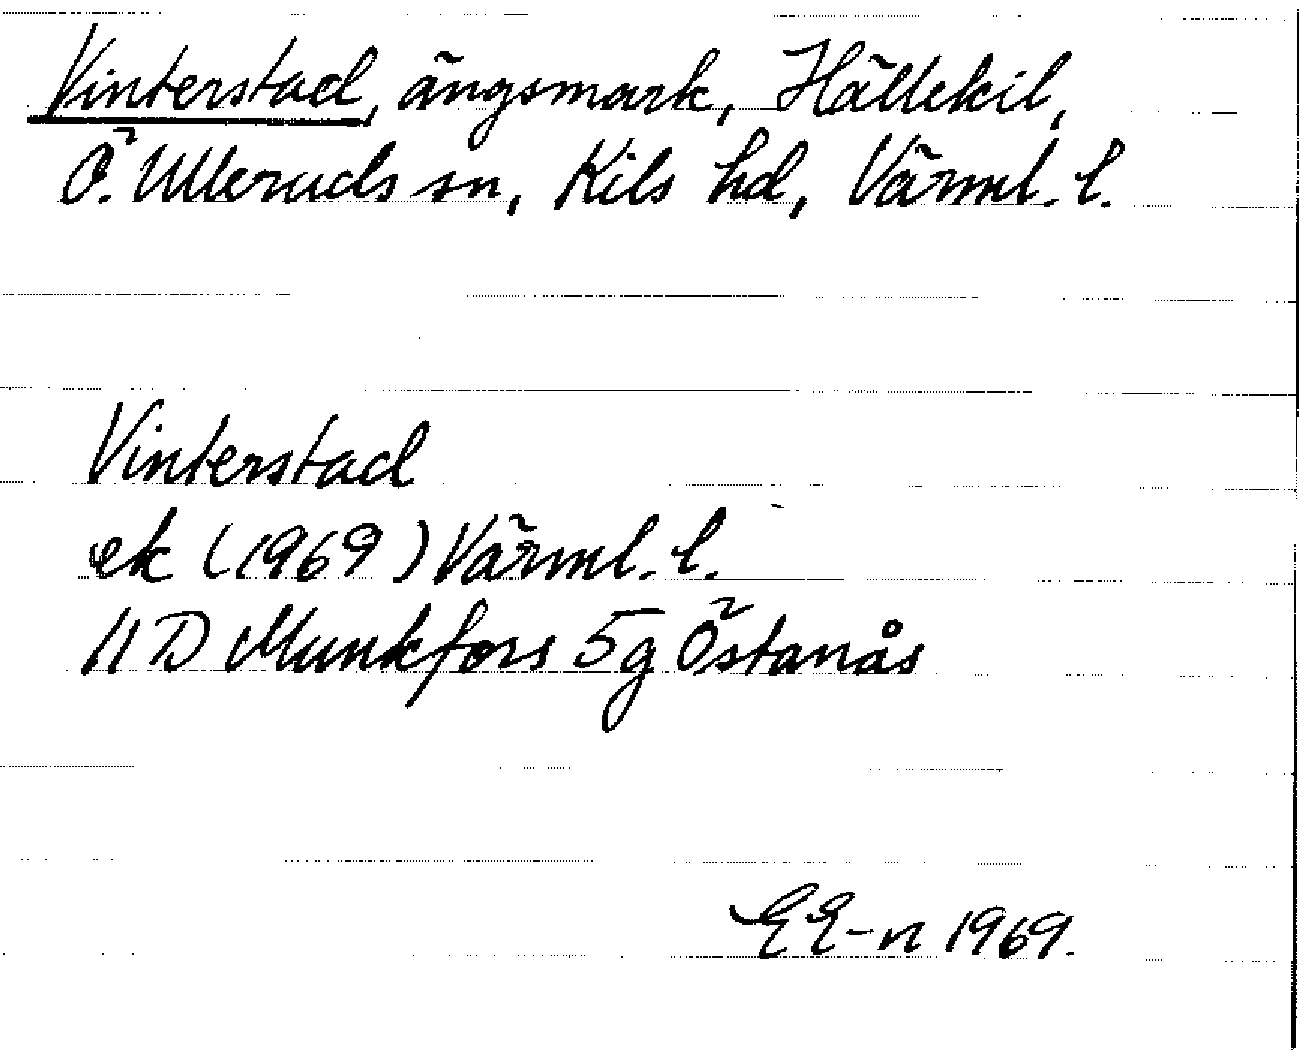 Vinterstad, ängsmark, Hällekil,
Ö. Ulleruds sn, Kils hd, Värml. l.
Vinterstad
ek (1969) Värml. l.
11 D Munkfors 5g Östanås
EE-n 1969.